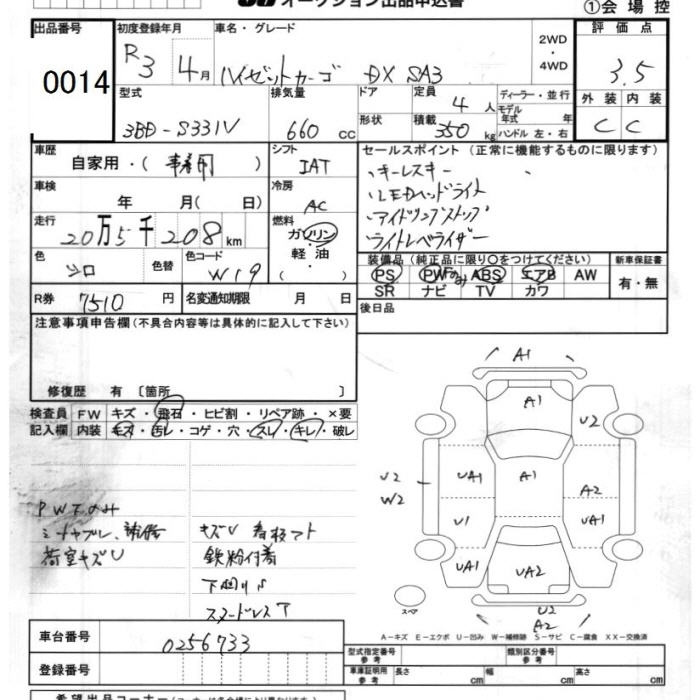 オークション出品申込書
①会場控
出品番号
0014
初度登録年月
R3 4月
車名・グレード
ハイゼットカーゴ DX SA3
2WD
・
4WD
評価点
3.5
外装 内装
C C
型式
3BD-S331V
排気量
660 cc
ドア
形状
定員
4 人
積載
350 kg
ディーラー・並行
モデル
年式 年
ハンドル 左・右
車歴
自家用・( 事業用 )
シフト
IAT
車検
年 月( 日)
冷房
AC
走行
20万5千208km
燃料
ガソリン
・軽油・
( )
色
シロ
色替
色コード
W19
R券
7510 円
名変通知期限 月 日
セールスポイント (正常に機能するものに限ります)
・キーレスキー
・LEDヘッドライト
・アイドリングストップ
ライトレベライザー
装備品(純正品に限り○をつけてください)
PS PW ABS エアB AW
SR ナビ TV カワ
新車保証書
有・無
後日品
注意事項申告欄(不具合内容等は具体的に記入して下さい)
修復歴 有 〔箇所 〕
検査員
記入欄
FW キズ・飛石・ヒビ割・リペア跡・×要
内装 キズ・汚レ・コゲ・穴・スレ・キレ・破レ
PWFのみ
荷室キズU
キズU 看板アト
鉄粉付着
下廻りS
スヌードレスT
A1
A1
U2
U2
W2
UA1
A1
A2
U1
UA1
UA1
UA2
U2
A2
スペア
A−キズ E−エクボ U−凹み W−補修跡 S−サビ C−腐食 XX−交換済
車台番号
0256733
登録番号
型式指定番号
参考
類別区分番号
参考
車庫証明用
参考
長さ cm 幅 cm 高さ cm
希望出品コーナー